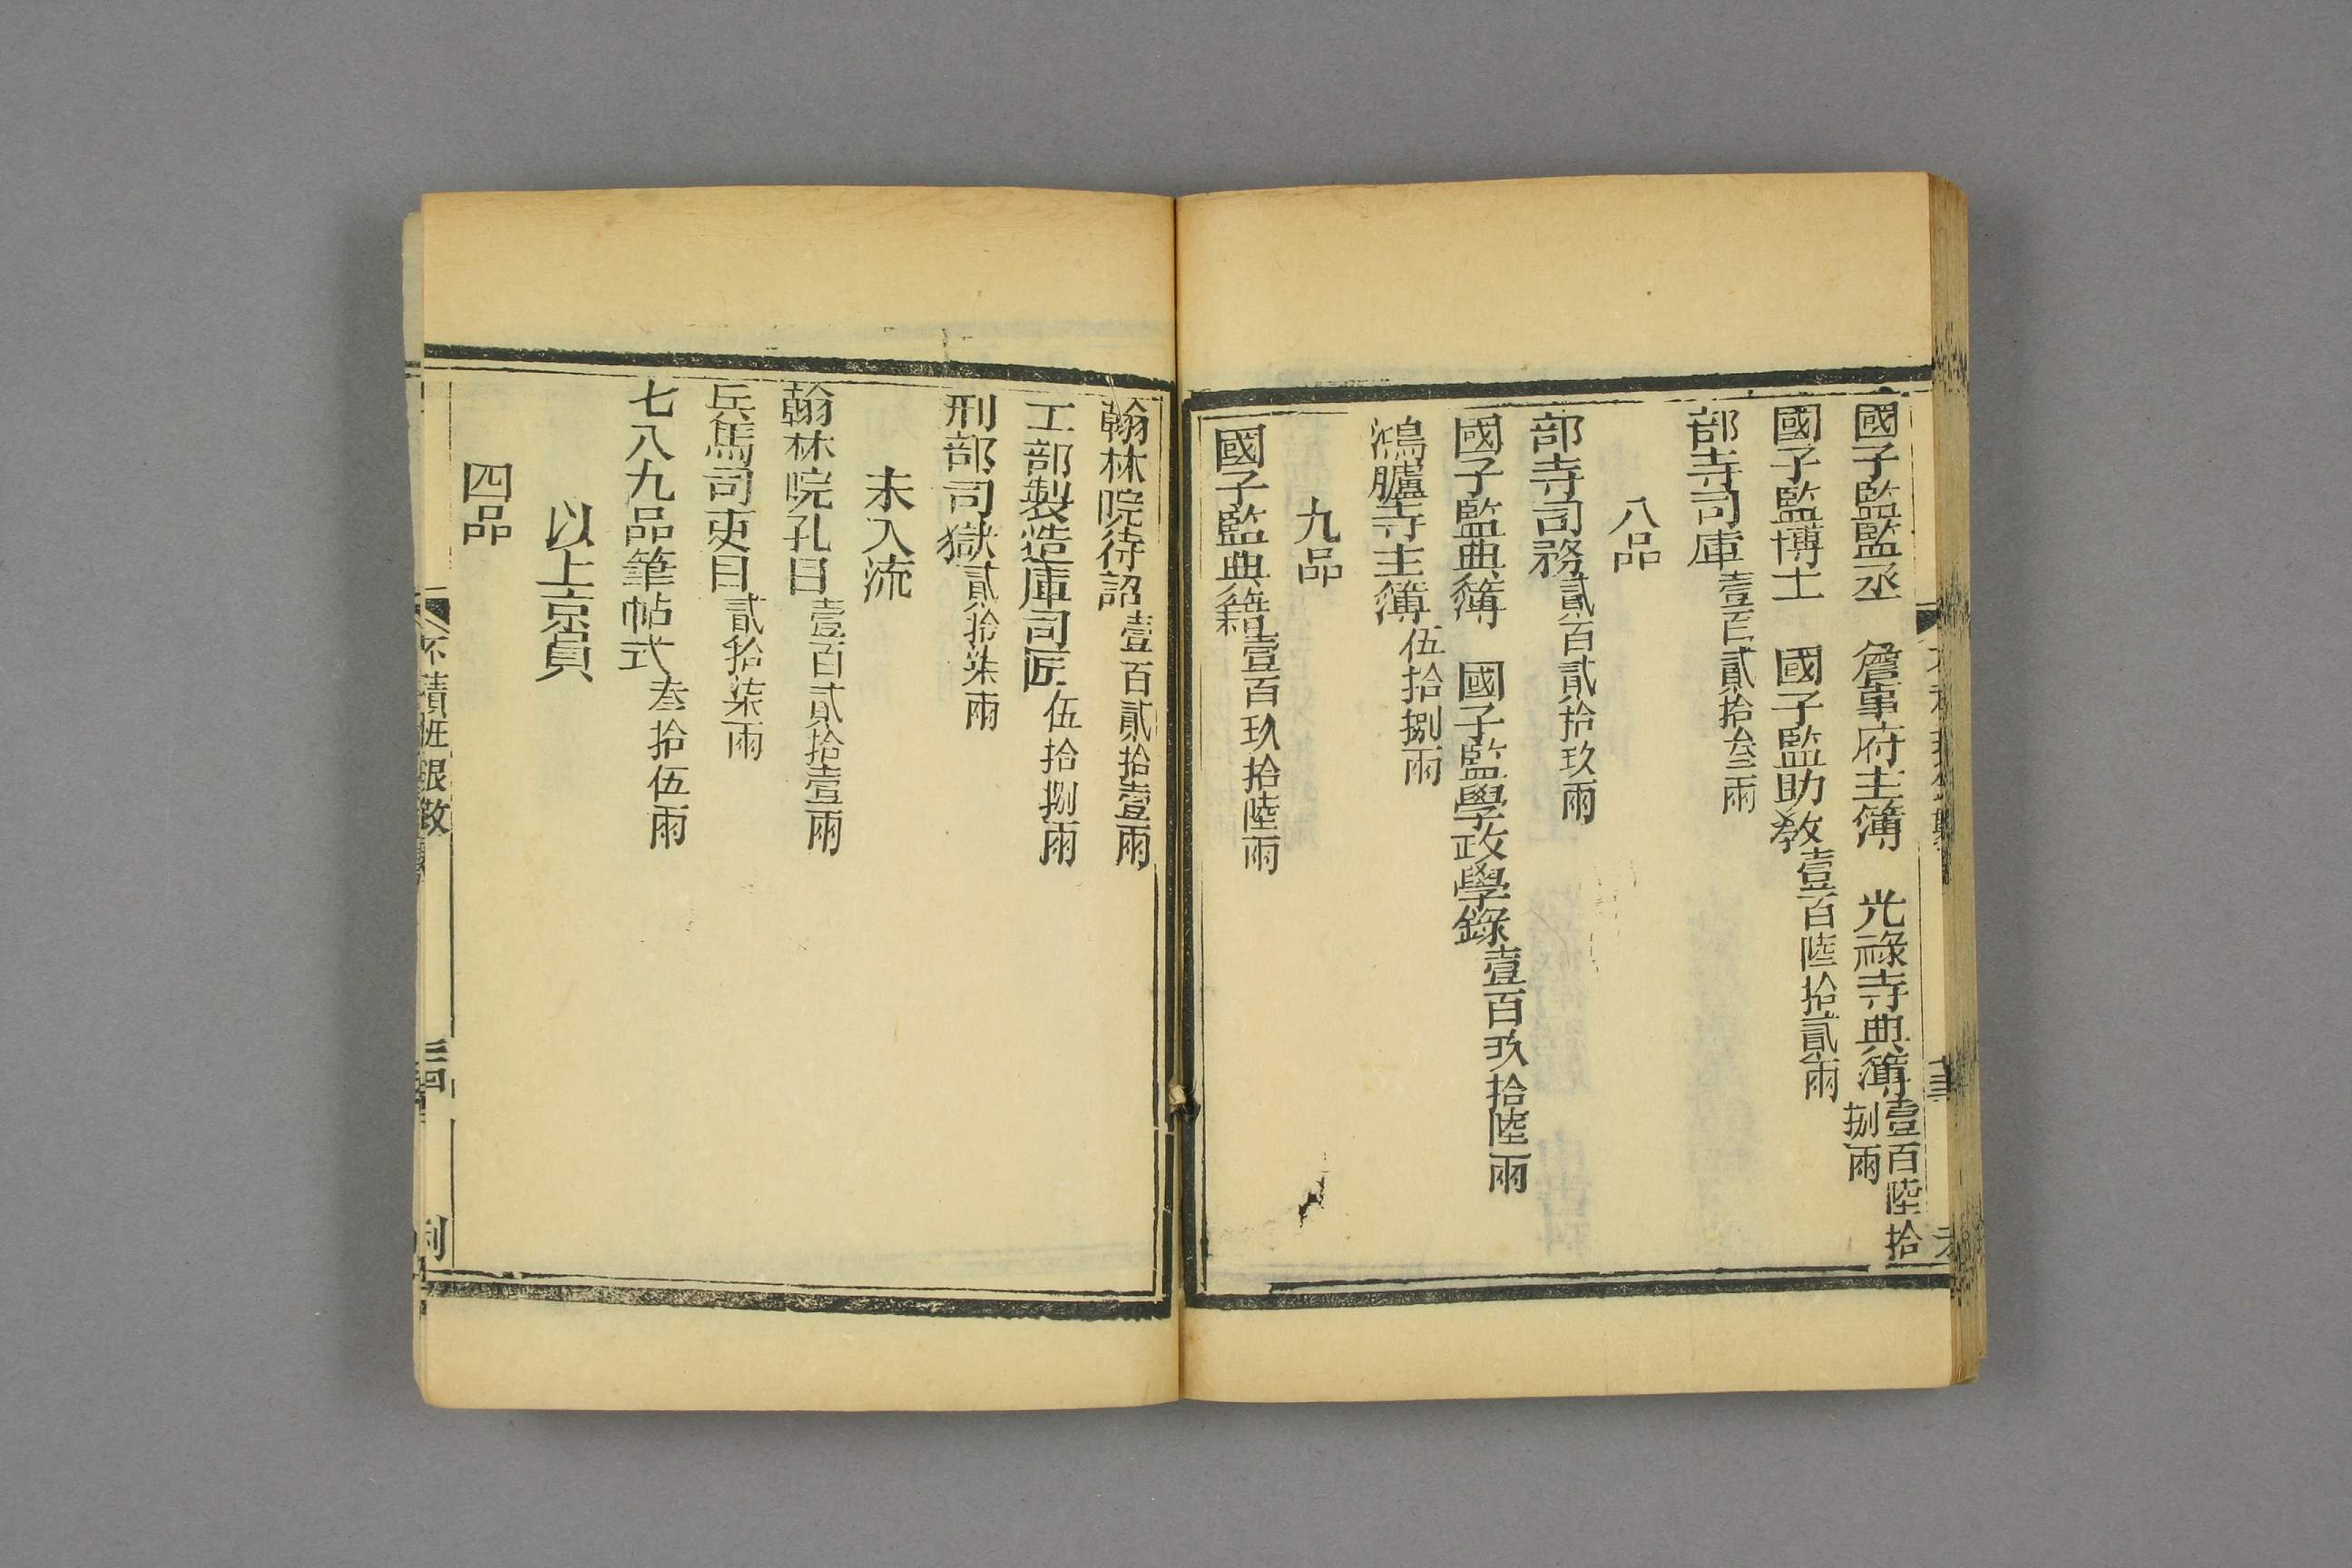 國子監監丞　詹事府主簿　光祿寺典簿壹百陸拾捌兩
國子監博士　國子監助敎壹百陸拾貳兩
部寺司庫壹百貳拾叁兩
八品
部寺司務貳百貳拾玖兩
國子監典簿　國子監學政學錄壹百玖拾陸兩
鴻臚寺主簿伍拾捌兩
九品
國子監典籍壹百玖拾陸兩
翰林院待詔壹百貳拾壹兩
工部製造庫司匠伍拾捌兩
刑部司獄貳拾柒兩
未入流
翰林院孔目壹百貳拾壹兩
兵馬司吏目貳拾柒兩
七八九品筆帖式叁拾伍兩
以上京員
四品
不積班銀數